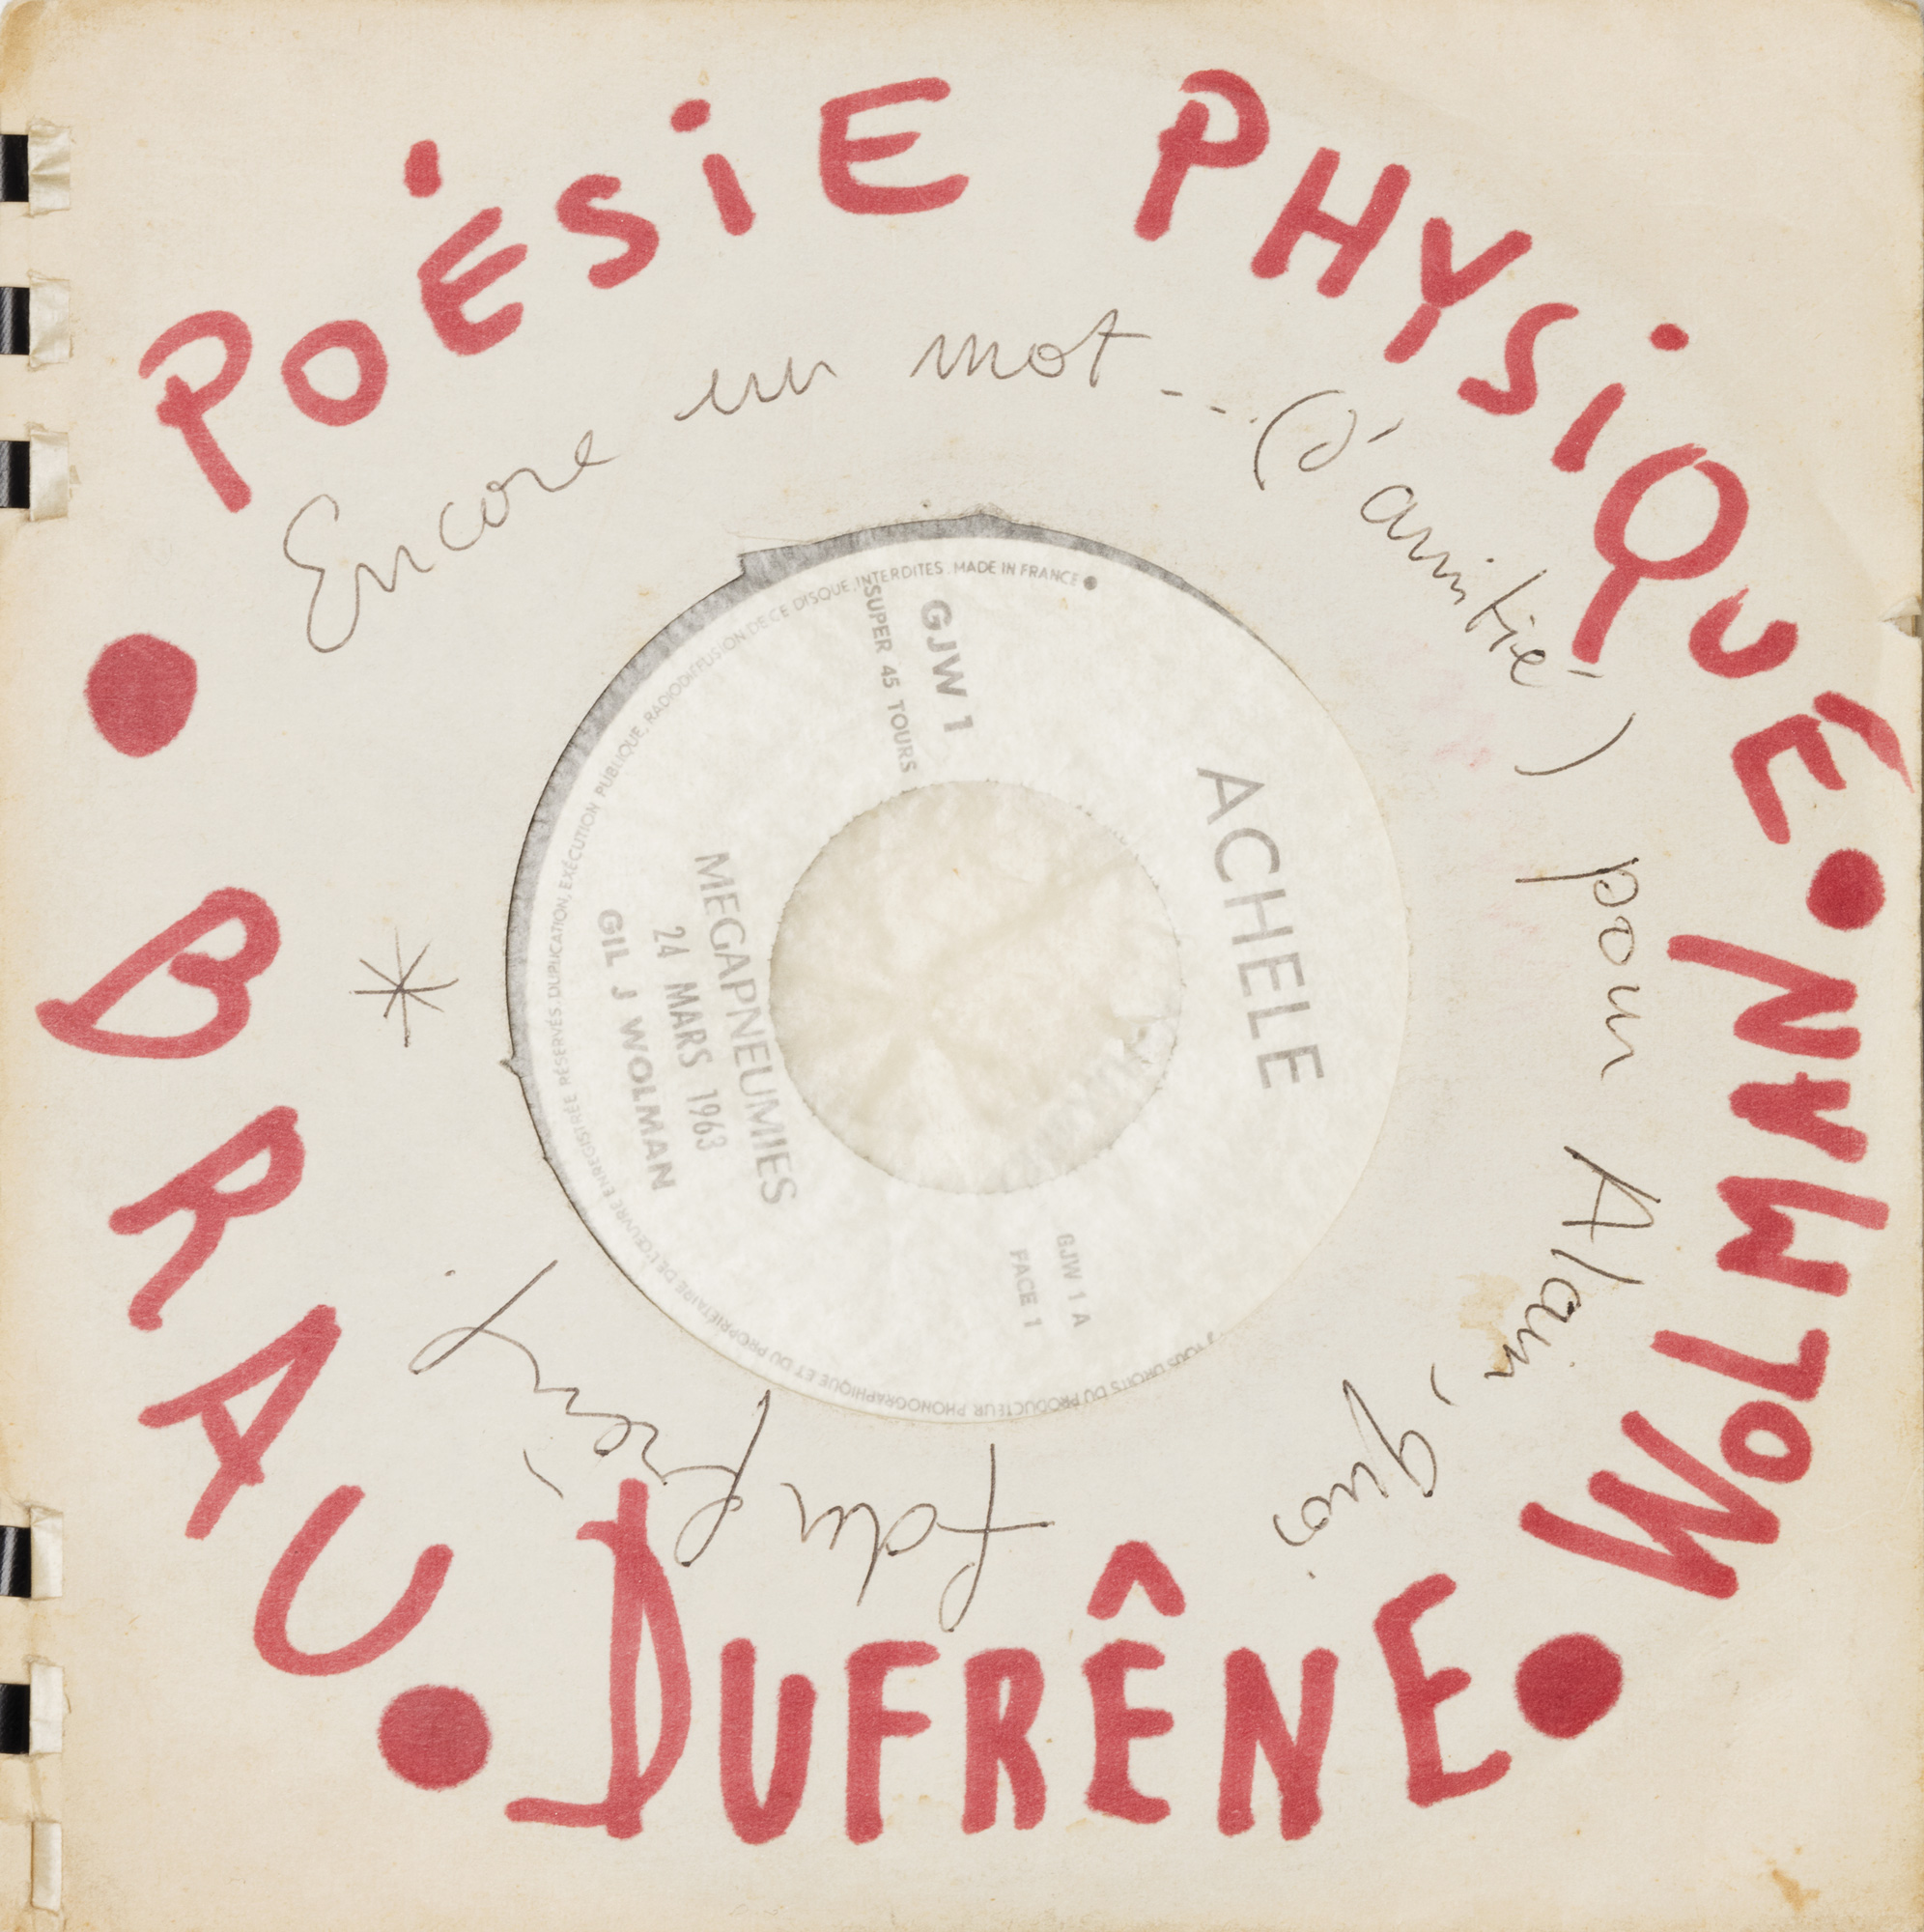 POÉSiE PHYSiQuÉ
WoLMAN
DUFRÊNE
BRAU
Encore un mot... (d'amitié) pour Alain, quoi
ACHELE
GJW 1
SUPER 45 TOURS
GJW 1 A
FACE 1
MEGAPNEUMIES
24 MARS 1963
GIL J WOLMAN
TOUS DROITS DU PRODUCTEUR PHONOGRAPHIQUE ET DU PROPRIÉTAIRE DE L'ŒUVRE ENREGISTRÉE RÉSERVÉS. DUPLICATION, EXÉCUTION PUBLIQUE, RADIODIFFUSION DE CE DISQUE INTERDITES. MADE IN FRANCE